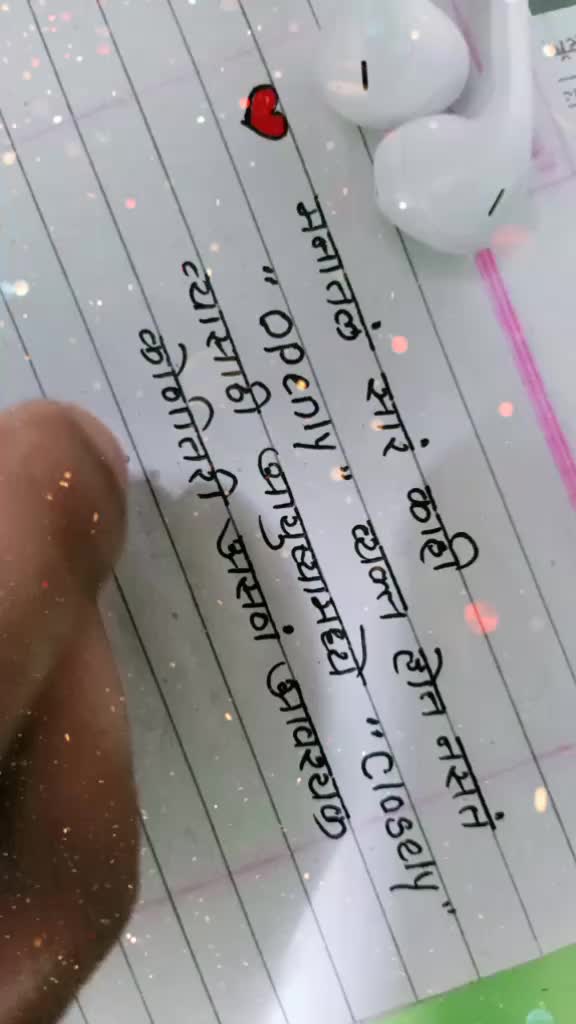 मनातलं सारं काही
"openly" व्यक्त होत नसतं
त्यासाठी आयुष्यामध्ये "closely"
कोणीतरी असणं आवश्यक